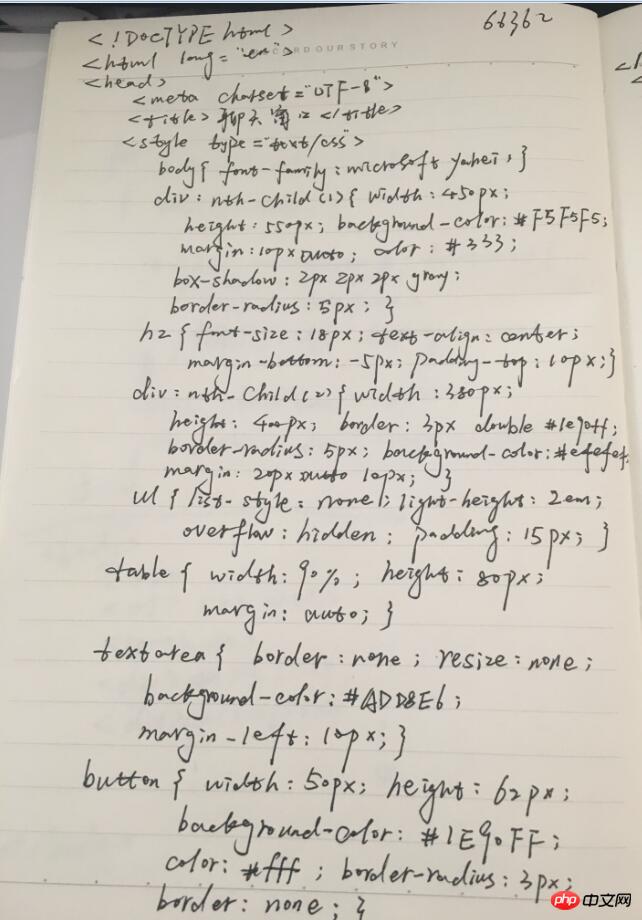 66362
<!DOCTYPE html>
<html lang="en">
CORD OUR STORY
<head>
<meta charset="UTF-8">
<title> 聊天窗口 </title>
<style type="text/css">
body{ font-family:microsoft yahei;}
div:nth-child(1){ width:450px;
height:550px; background-color:#F5F5F5;
margin:10px auto; color:#333;
box-shadow:2px 2px 2px gray;
border-radius:5px; }
h2{ font-size:18px; text-align:center;
margin-bottom:-5px; padding-top:10px;}
div:nth-child(2){ width:380px;
height:400px; border:3px double #1e90ff;
border-radius:5px; background-color:#efefef
margin:20px auto 10px; }
ul{ list-style:none; light-height:2em;
overflow:hidden; padding:15px; }
table{ width:90%; height:80px;
margin:auto; }
textarea{ border:none; resize:none;
background-color:#ADD8E6;
margin-left:10px; }
button{ width:50px; height:62px;
background-color:#1E90FF;
color:#fff; border-radius:3px;
border:none; }
php中文网